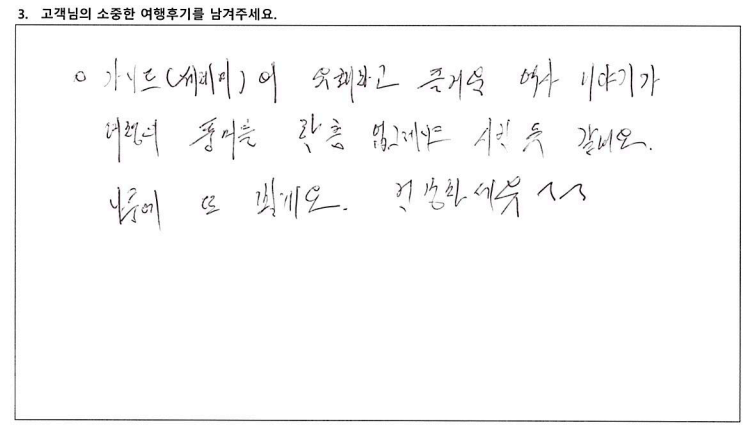 3. 고객님의 소중한 여행후기를 남겨주세요.
○ 가이드(세레미)의 유쾌하고 즐거운 역사 이야기가
여행의 풍미를 한층 업그레이드 시킨 듯 같네요.
나중에 또 뵐게요. 건강하세욧 ^^